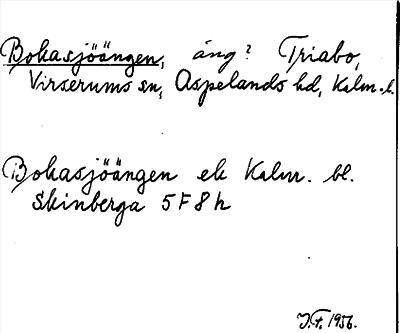 Bokasjöängen, äng? Triabo,
Virserums sn, Aspelands hd, Kalm. l.
Bokasjöängen ek Kalm. bl.
Skinberga 5F8h
J.F. 1956.